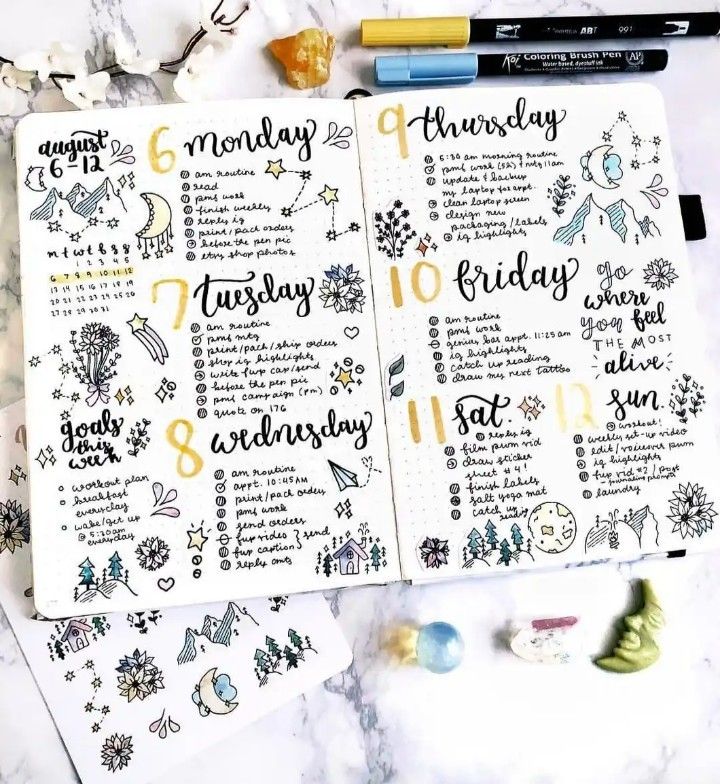 august
6-12
m t w t f s s
1 2 3 4 5
6 7 8 9 10 11 12
13 14 15 16 17 18 19
20 21 22 23 24 25 26
27 28 29 30 31
goals
this
week
workout plan
breakfast
everyday
wake/get up
@ 5:30am
everyday
6 monday
am routine
read
pms work
finish weekly
reply ig
print/pack orders
before the pen pic
etsy shop photos
7 tuesday
am routine
pms mtg
print/pack/ship orders
shop ig highlights
write fwp cap/send
before the pen pic
pms campaign (pm)
quote on 176
8 wednesday
am routine
appt. 10:45AM
print/pack orders
pms work
send orders
fwp video } send
fwp caption
reply cmts
9 thursday
5:30 am morning routine
pms work (5h) & mtg 11am
update & backup
my laptop for appt.
clean laptop screen
design new
packaging/labels
ig highlights
10 friday
am routine
pms work
genius bar appt. 11:25 am
ig highlights
catch up reading
draw my next tattoo
go
where
you feel
THE MOST
alive
11 sat.
reply ig
film prwm vid
draw sticker
sheet #4!
finish labels
salt yoga mat
catch up
reading
12 sun.
workout!
weekly set-up video
edit/voiceover prwm
ig highlights
fwp vid #2 / post
- journaling prompts
laundry
ABT
991
Koi Coloring Brush Pen
Water based, dyestuff ink
AP